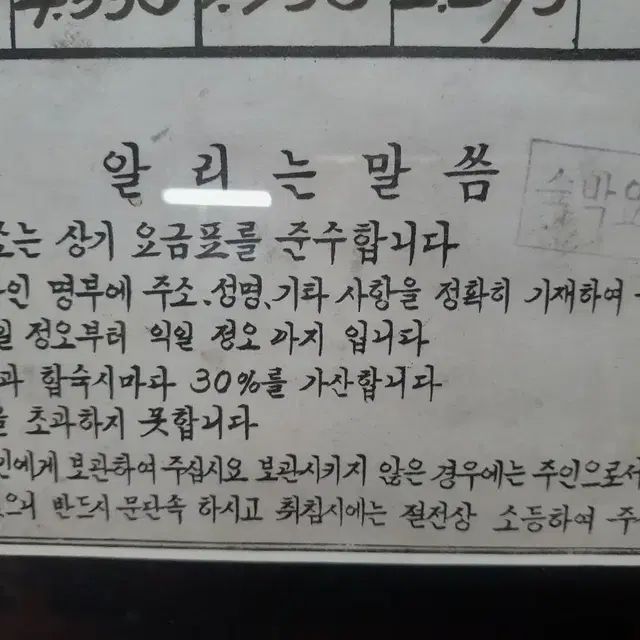 알리는 말씀
숙박업
는 상기 요금표를 준수합니다
명부에 주소.성명.기타 사항을 정확히 기재하여
정오부터 익일 정오 까지 입니다
합숙시마다 30%를 가산합니다
초과하지 못합니다
인에게 보관하여 주십시요 보관시키지 않은 경우에는 주인으로서
반드시 문단속 하시고 취침시에는 절전상 소등하여 주